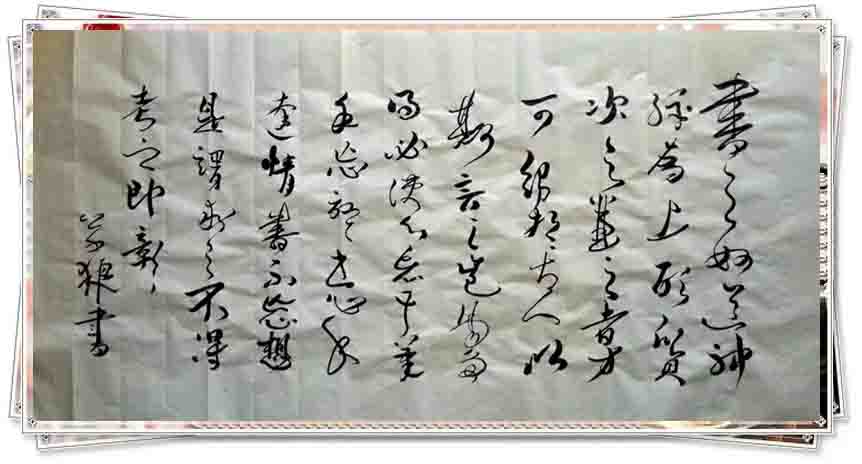 書之妙道神
彩為上形質
次之兼之者方
可紹於古人以
斯言之豈易多
得必使心忘于筆
手忘於書心手
達情書不忘想
是謂求之不得
考之即彰
書